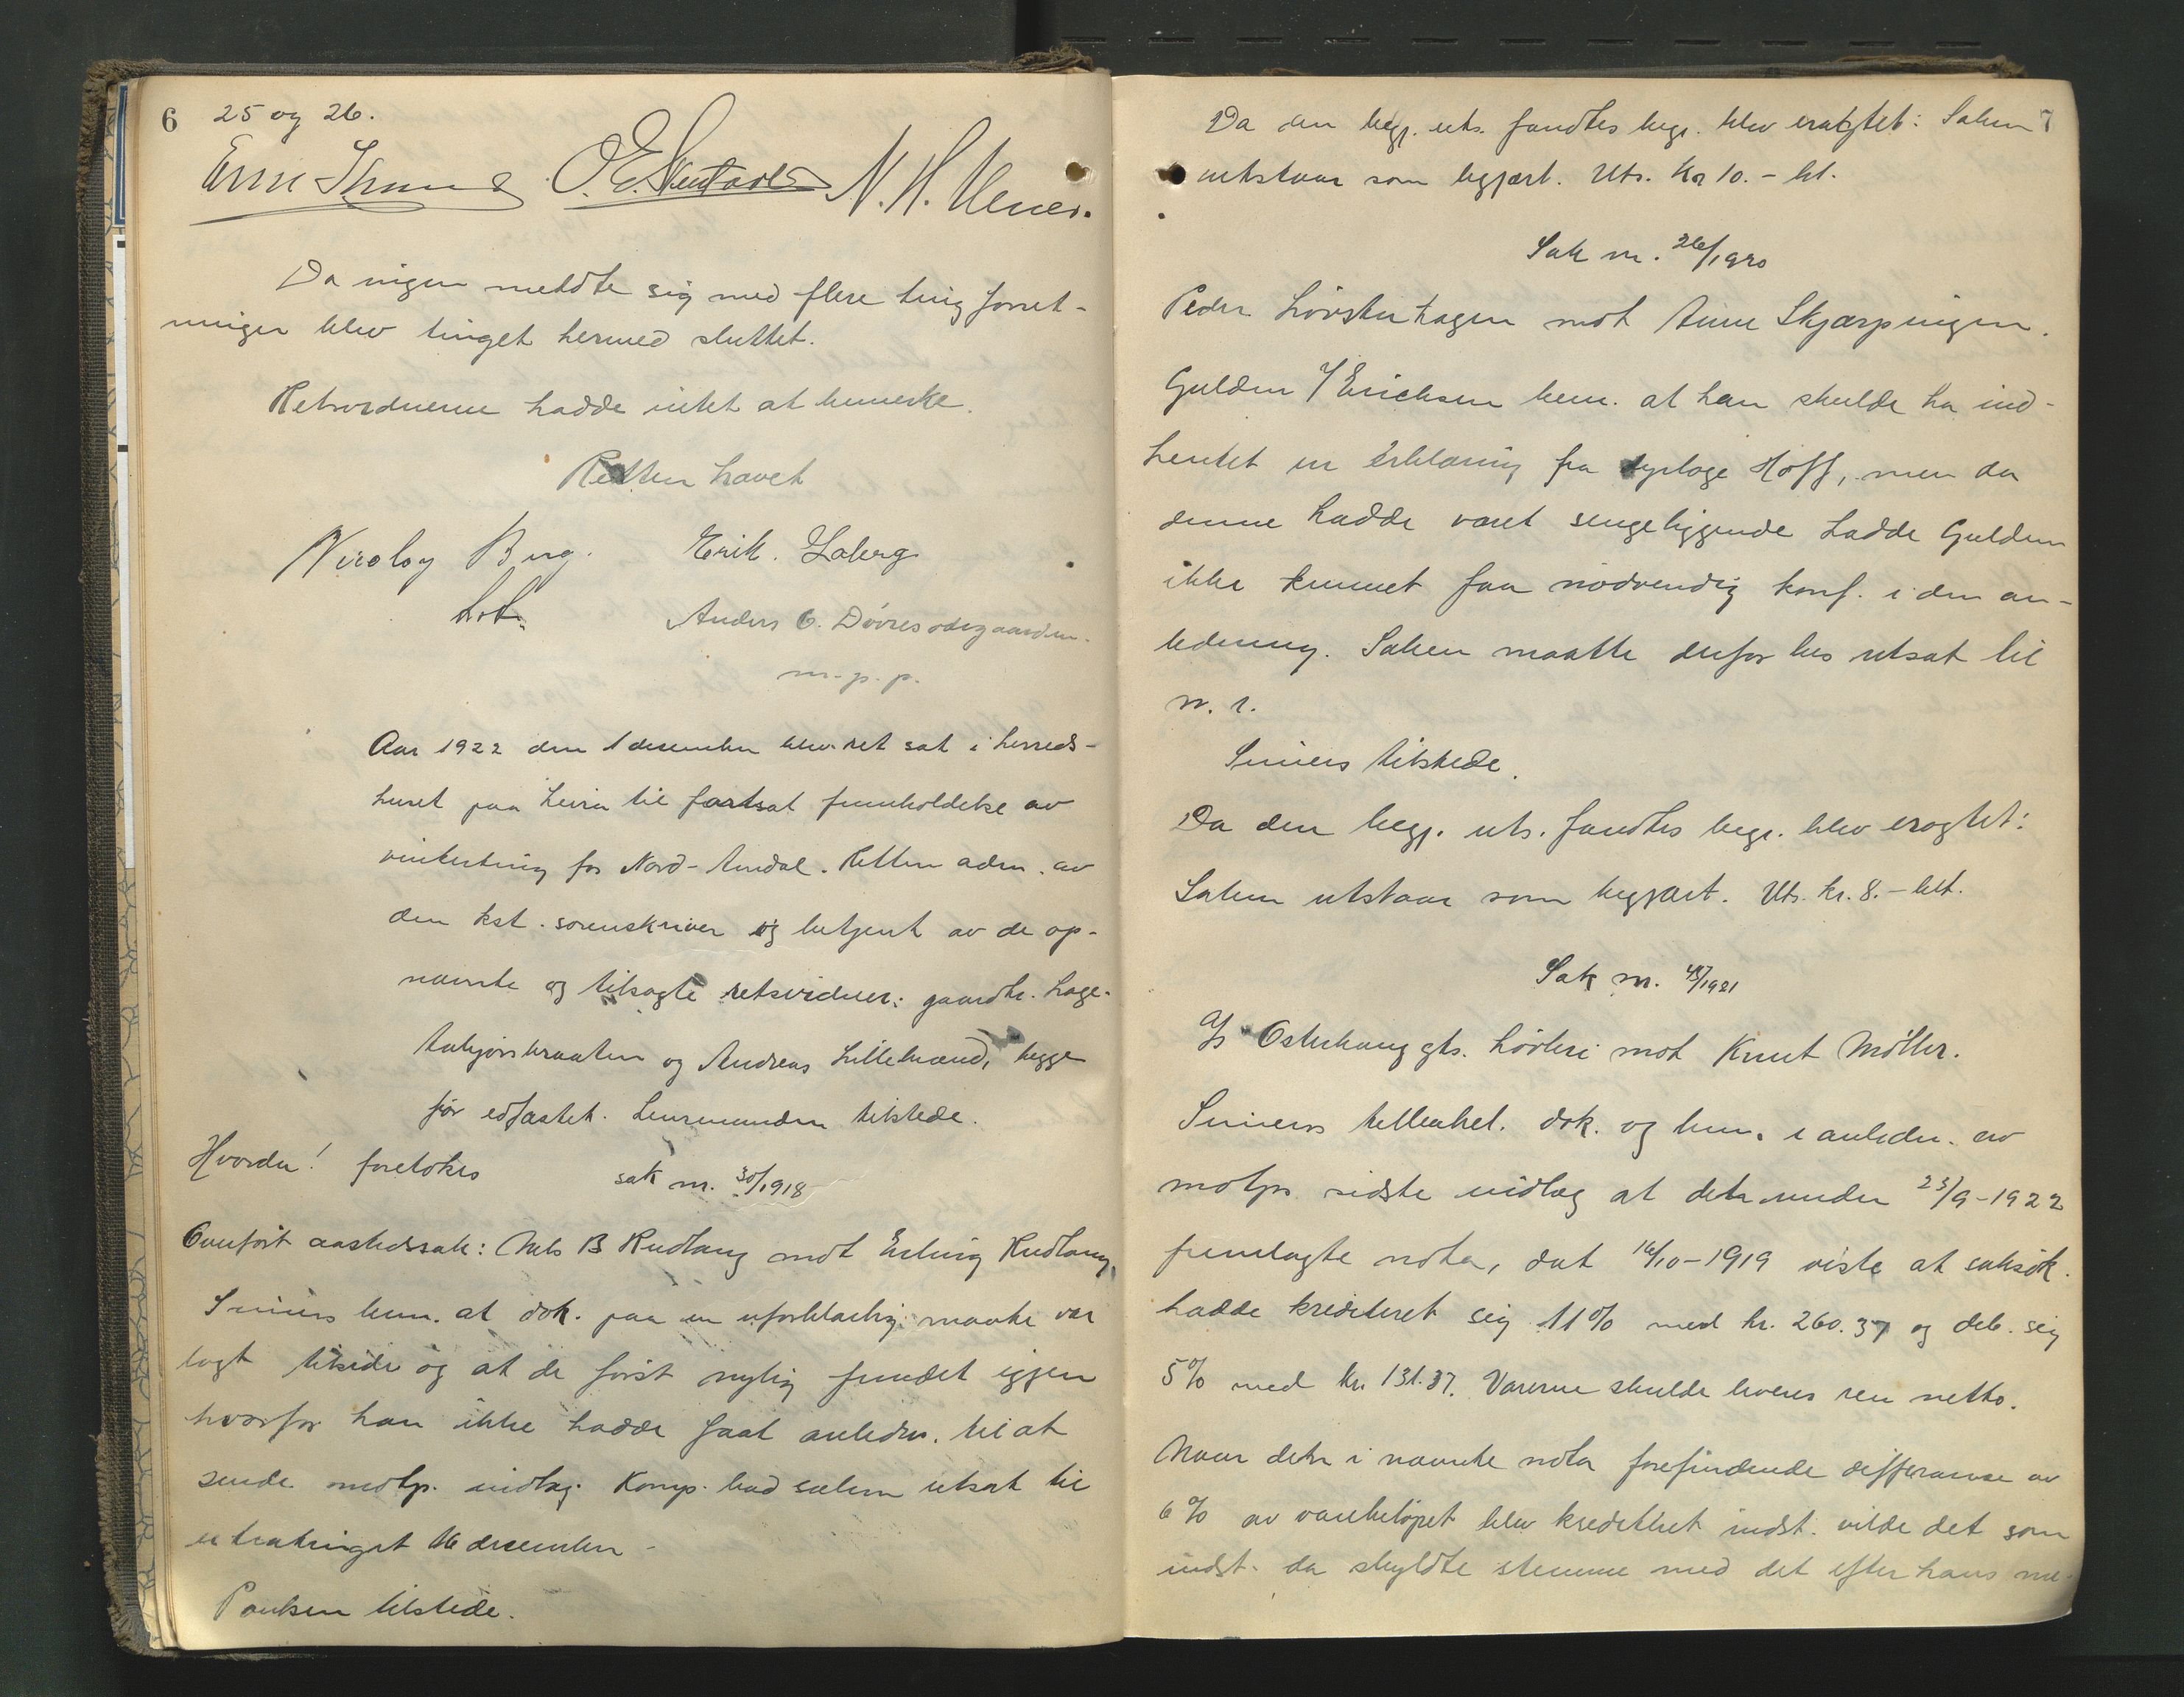 6 25 og 26.
O. E. N. H.
Da ingen meldte sig med flere ting forret-
ninger blev tinget hermed sluttet.
Retsvidnerne hadde intet at bemerke.
Retten hævet
Nicolay Berg. Erik
Anders O. Dövresødegaarden.
m. p. p.
Aar 1922 den 1 desember blev ret sat i herreds-
huset paa Leira til fortsat fremholdelse av
vinterting for Nord-Aurdal. Retten adm. av
den kst. sorenskriver og betjent av de op-
nævnte og tilsagte retsvidner: gaardbr. Lage
og Andreas Lillebrænd, begge
før edfæstet. Lensmanden tilstede.
Hvorda! foretokes sak nr. 30/1918
Overført aastedssak: Nils B Rudlang mot Erling Rudlang.
Smiers bem. at dok. paa en uforklarlig maate var
lagt tilside og at de först nylig fundet igjen
hvorfor han ikke hadde faat anledn. til at
sende motp. indlæg. Komp. bad saken utsat til
extratinget 16 desember
Paulsen tilstede.
Da den begj. uts. fandtes begr. blev eragtet: Saken 7
utstaar som begjært. Uts. Kr 10.- bt.
Sak nr. 26/1920
Peder Lövstuhagen mot Anne Skjærpingen.
Gulden f/ Erichsen bem. at han skulde ha ind-
hentet en erklæring fra dyrlæge Hoff, men da
denne hadde været sengeliggende hadde Gulden
ikke kunnet faa nödvendig konf. i den an-
ledning. Saken maatte derfor bes utsat til
n. r.
Smiers tilstede.
Da den begj. uts. fandtes begr. blev eragtet:
Saken utstaar som begjært. Uts. kr. 8.- blt.
Sak nr. /1921
A/S Osterhaug gts. Lövteri mot Knut Möller.
Smiers dok. og bem. i anledn. av
motps. sidste indlæg at den under 23/9-1922
fremlagte nota, dat 16/10-1919 viste at saksök.
hadde krediteret sig 11% med kr. 260.37 og deb. sig
5% med kr. 131.37. Varerne skulde leveres ren netto.
Naar den i nævnte nota forefindende differanse av
6% av varebelöpet blev kreditert indst. vilde det som
indst. da skyldte stemme med det efter hans me-